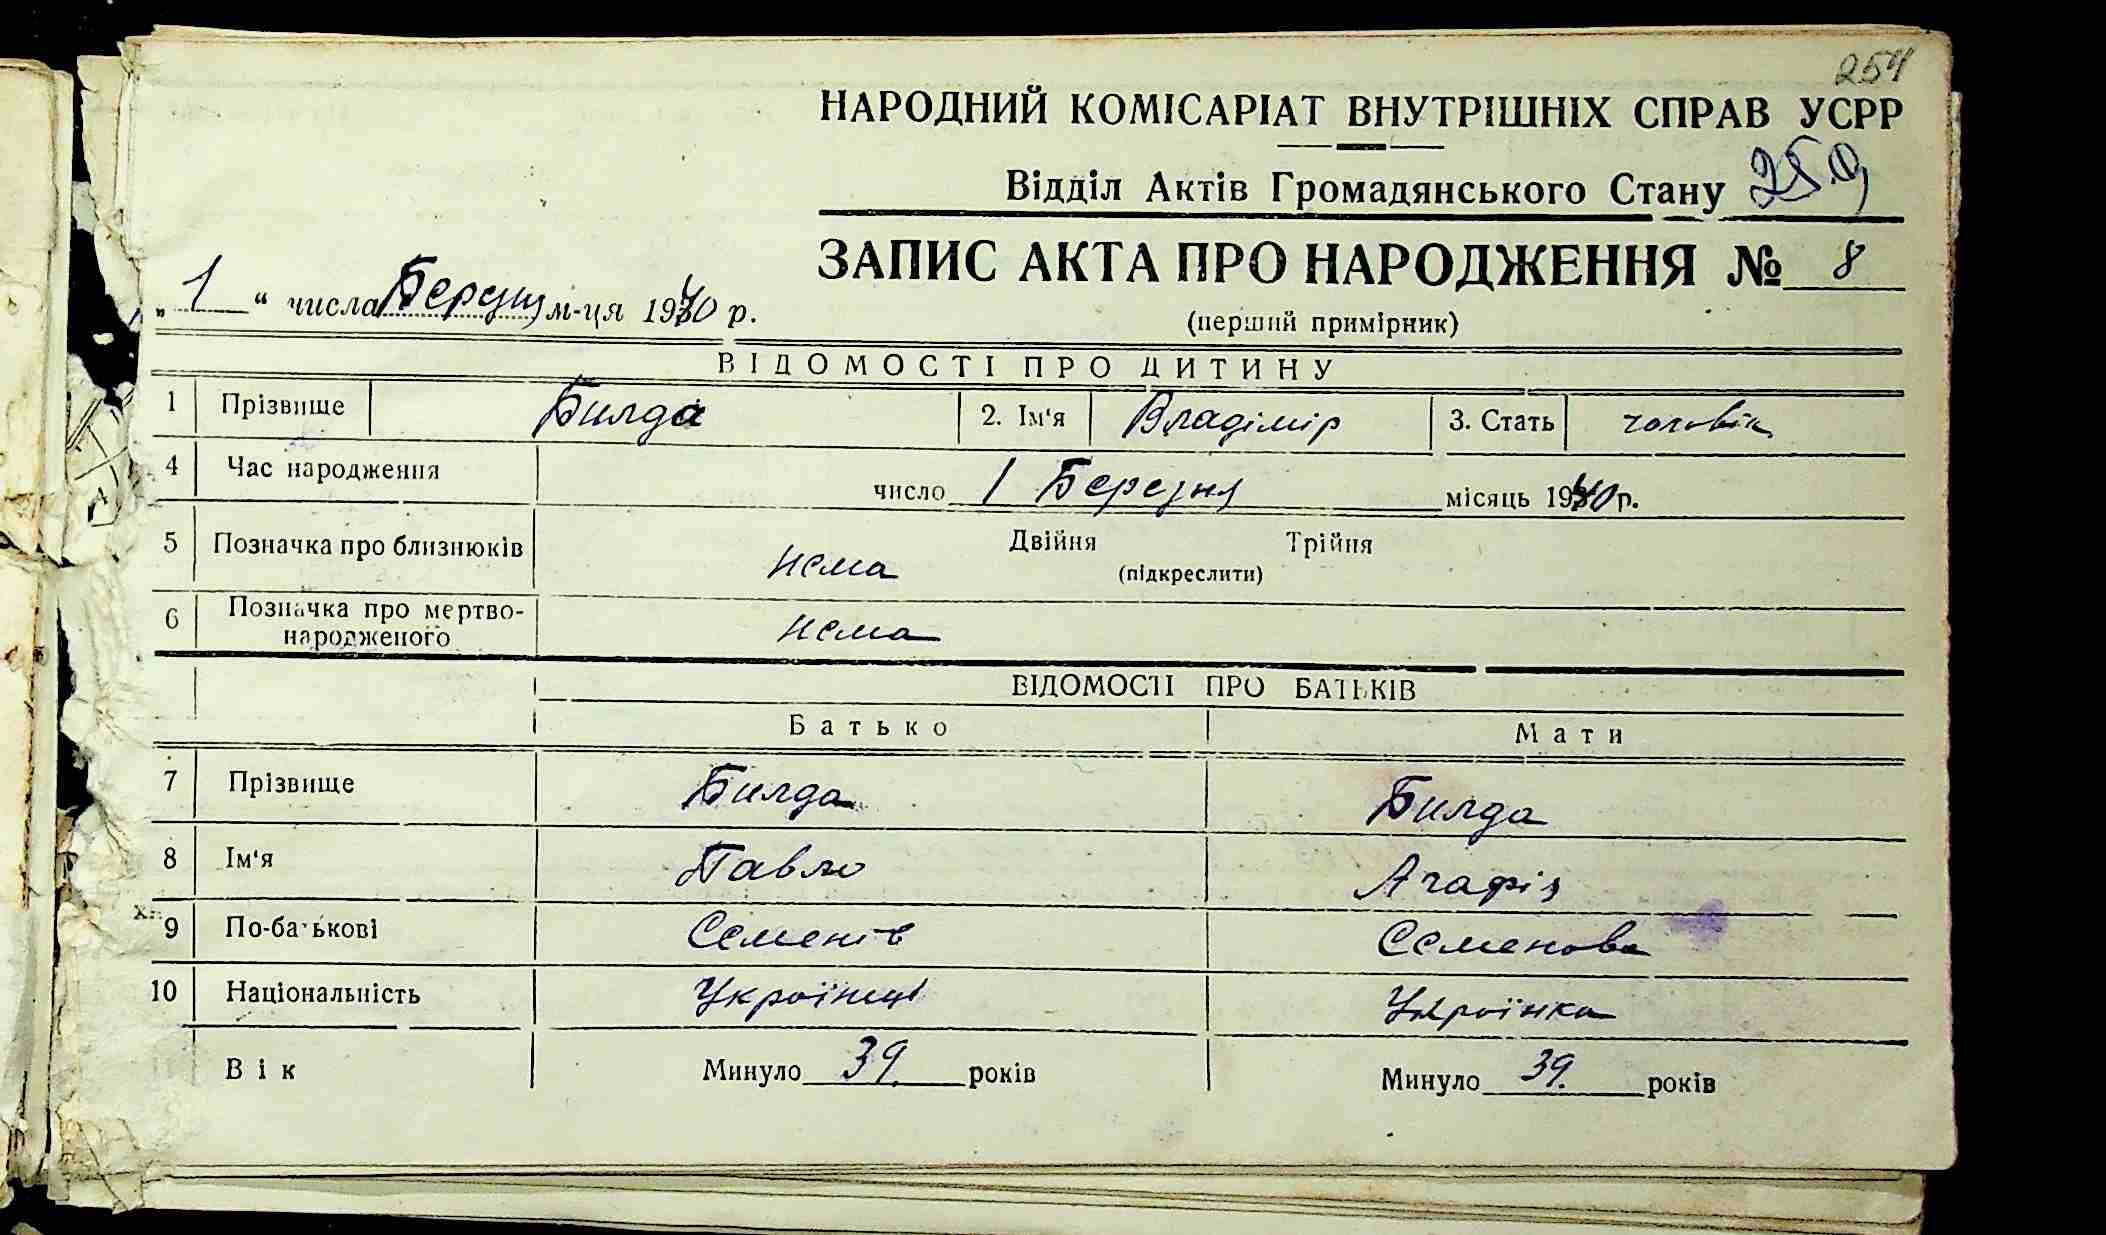 254
НАРОДНИЙ КОМІСАРІАТ ВНУТРІШНІХ СПРАВ УСРР
Відділ Актів Громадянського Стану 259
ЗАПИС АКТА ПРО НАРОДЖЕННЯ № 8
„1“ числа Березня м-ця 1940 р.
(перший примірник)
ВІДОМОСТІ ПРО ДИТИНУ
1 Прізвище Билда 2. Ім'я Владімір 3. Стать чоловік
4 Час народження число 1 Березня місяць 1940 р.
5 Позначка про близнюків нема Двійня Трійня
(підкреслити)
6 Позначка про мертво-
народженого нема
ВІДОМОСТІ ПРО БАТЬКІВ
Батько Мати
7 Прізвище Билда Билда
8 Ім'я Павло Агафія
9 По-батькові Семенів Семенова
10 Національність Українець Українка
Вік Минуло 39 років Минуло 39. років